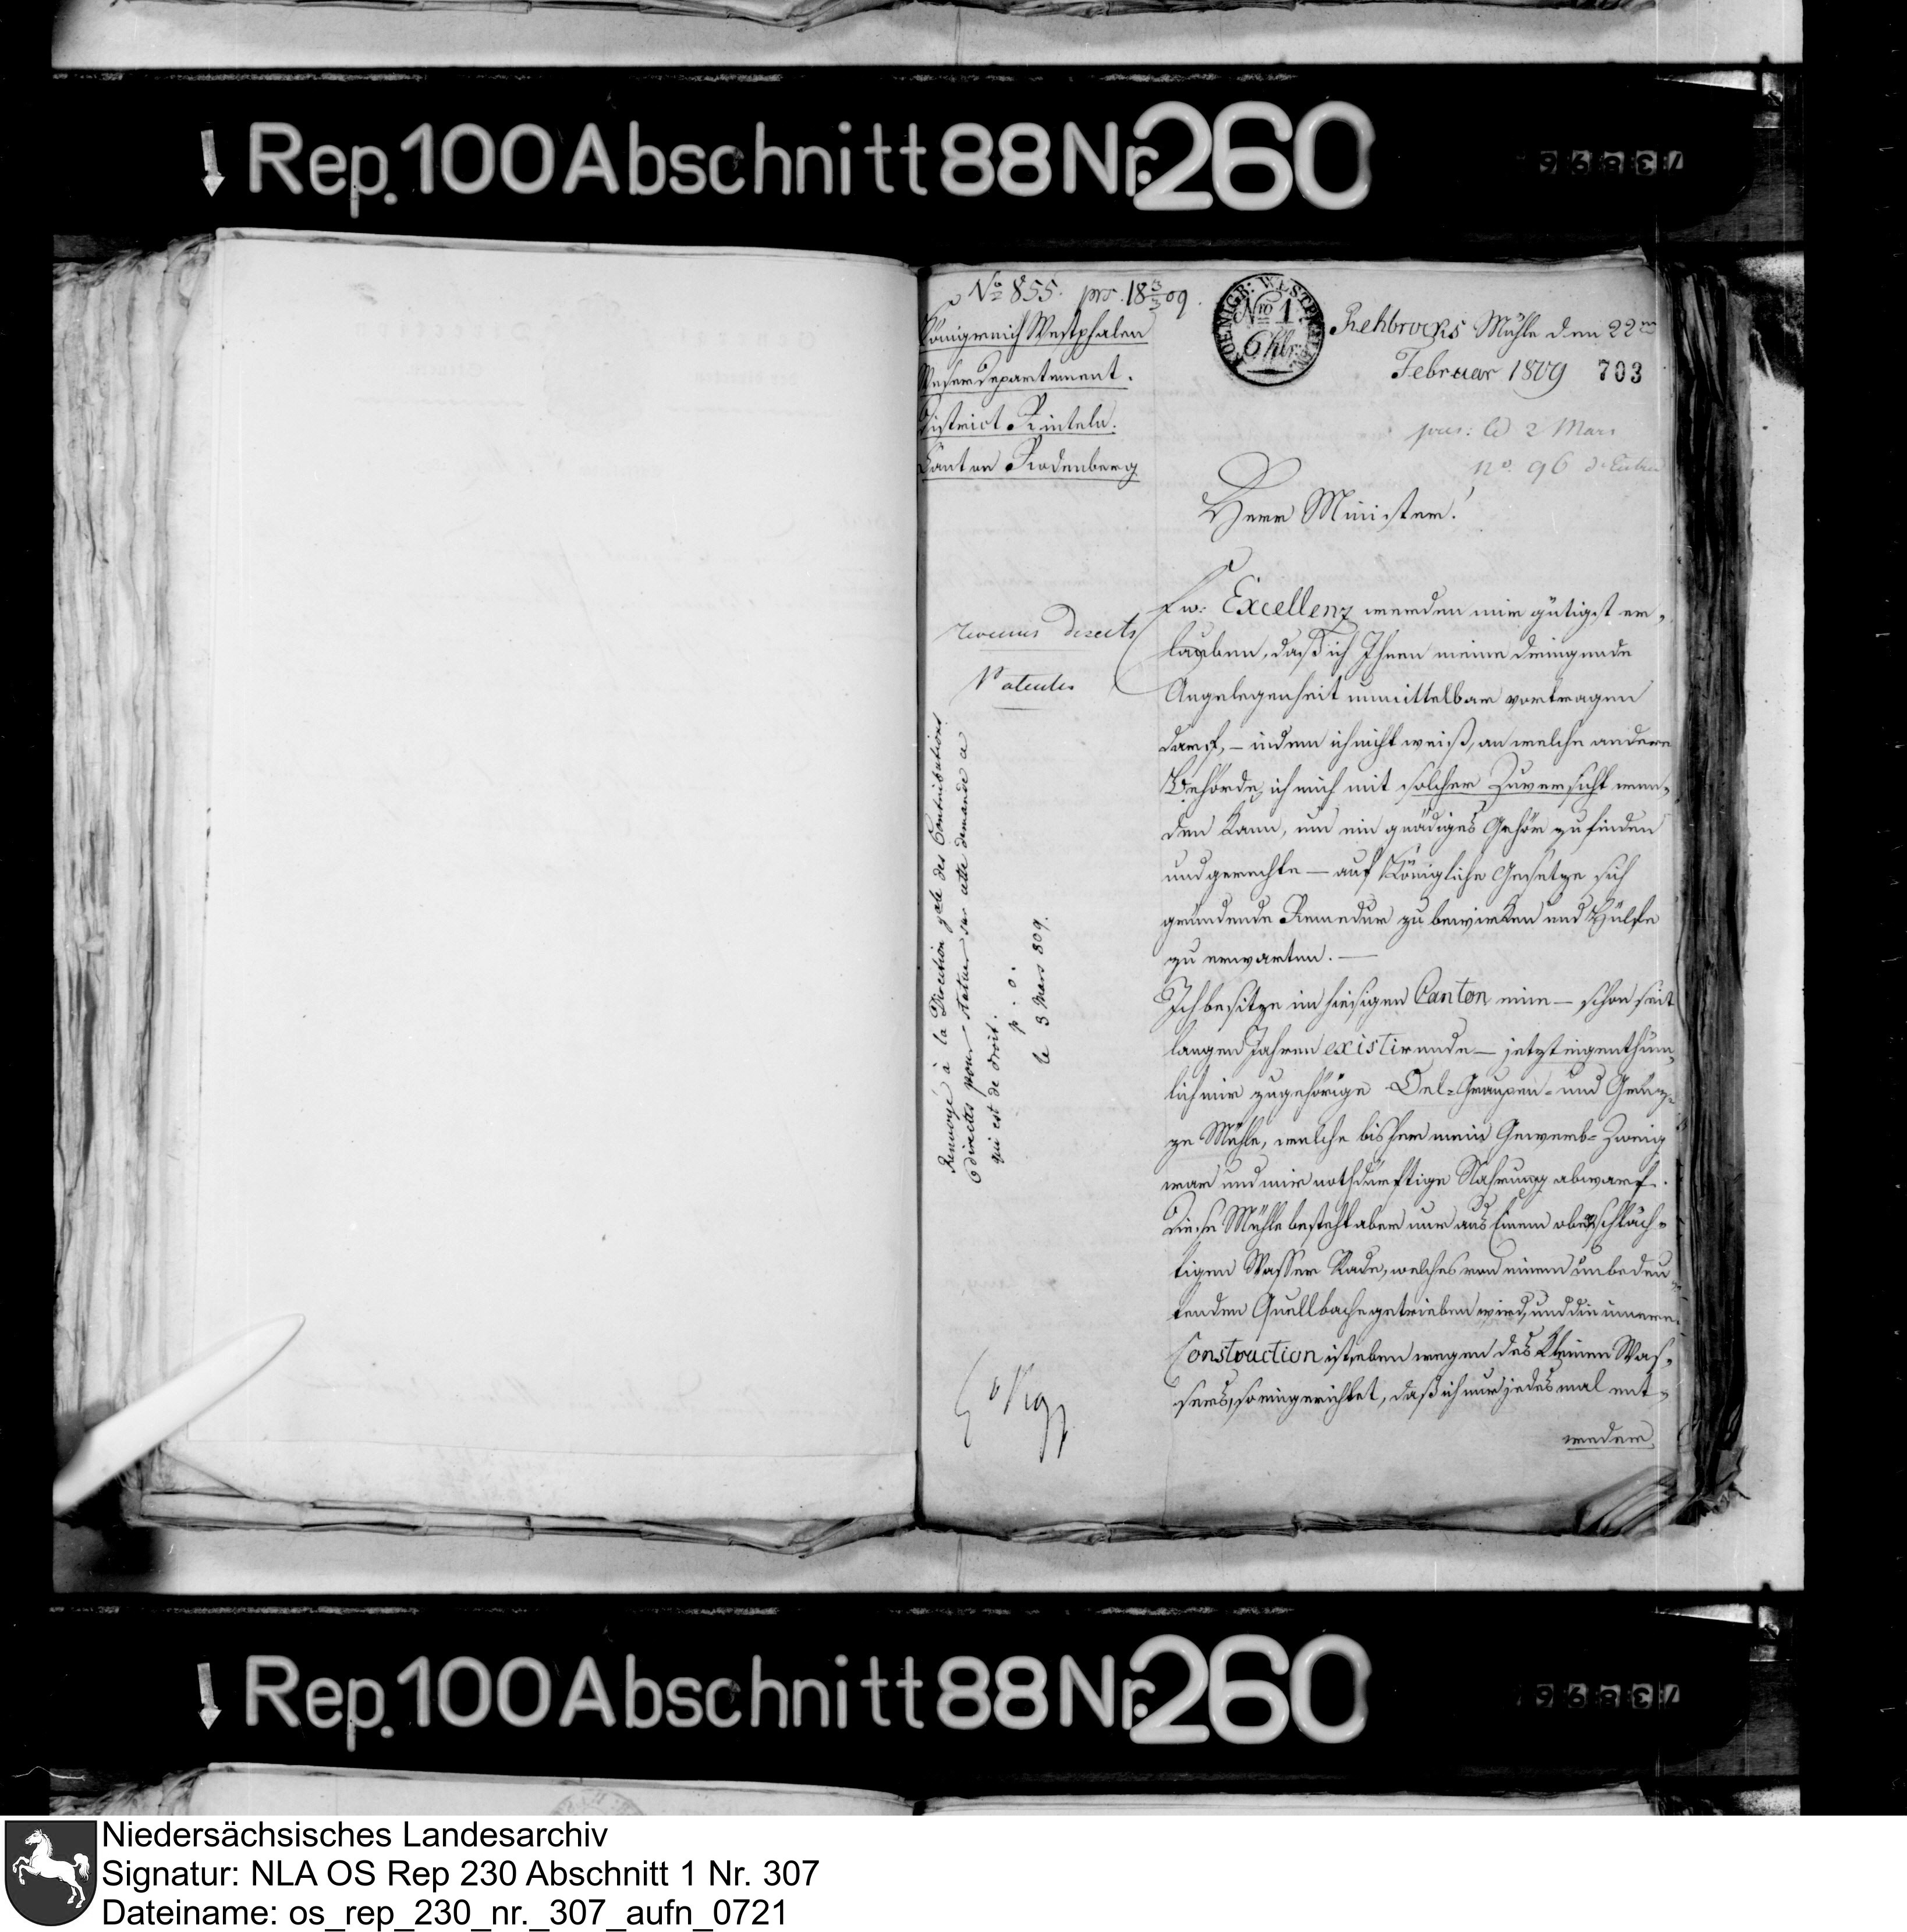 Rep. 100 Abschnitt 88 Nr. 260
No 855. prs. 18 3/3 09.
Königreich Westphalen
Weserdepartement.
District Rinteln.
Canton Rodenberg
KOENIGR: WESTPHALEN
Nro 1
Rehbrocks Mühle den 22ten
Februar 1809
703
pres: le 2 Mars
no. 96 d'Entrée
Herr Minister!
Ew: Excellenz werden mir gütigst er-
lauben, daß ich Ihnen meine dringende
Angelegenheit unmittelbar vortragen
darf, – indem ich nicht weiß, an welche andere
Behörde, ich mich mit solcher Zuversicht wen-
den kann, um ein gnädiges Gehör zu finden
und gerechte – auf Königliche Gesetze sich
gründende Remedur zu bewirken und Hülfe
zu erwarten. –
Ich besitze im hiesigen Canton eine – schon seit
langen Jahren existirende – jetzt eigenthüm-
lich mir zugehörige Oel-Graupen- und Grüz-
ze Mühle, welche bisher mein Gewerb-Zweig
war und mir nothdürftige Nahrung abwarf.
Diese Mühle besteht aber nur aus Einem oberschläch-
tigen Wasser Rade, welches von einem unbedeu-
tenden Quellbache getrieben wird, und die innere
Construction ist, eben wegen des kleinen Was-
sers, so eingerichtet, daß ich nur jedesmal ent-
weder
revenus directs
Patentes
Renvoyé à la Direction gale des Contributions
directes pour statuer sur cette demande ce
qui est de droit.
p. o.
le 3 Mars 809.
Rep. 100 Abschnitt 88 Nr. 260
Niedersächsisches Landesarchiv
Signatur: NLA OS Rep 230 Abschnitt 1 Nr. 307
Dateiname: os_rep_230_nr._307_aufn_0721